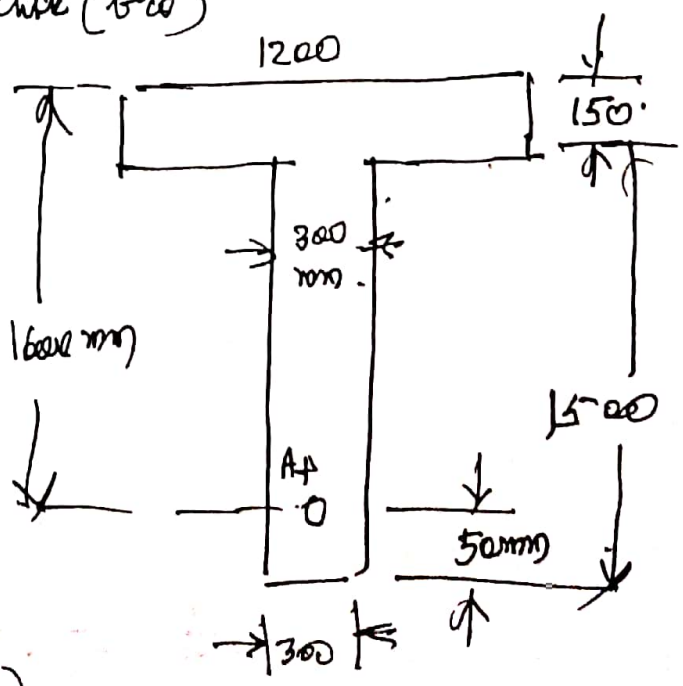 1200
150
300
mm
1600 mm
1500
Ap
50mm
300